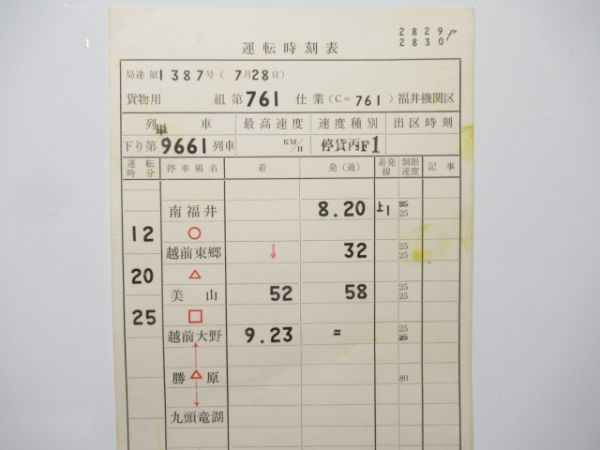 2829P
2830
運転時刻表
局達第1387号(7月28日)
貨物用 組第761 仕業(C=761) 福井機関区
列車 最高速度 速度種別 出区時刻
単
下り第9661列車 KM/H 停貨丙F1
運転時分 停車場名 着 発(通) 着発線 制限速度 記事
南福井 8.20 上1 25
12
越前東郷 ↓ 32 25 25
20
美山 52 58 25 25
25
越前大野 9.23 = 25
勝原 80
九頭竜湖